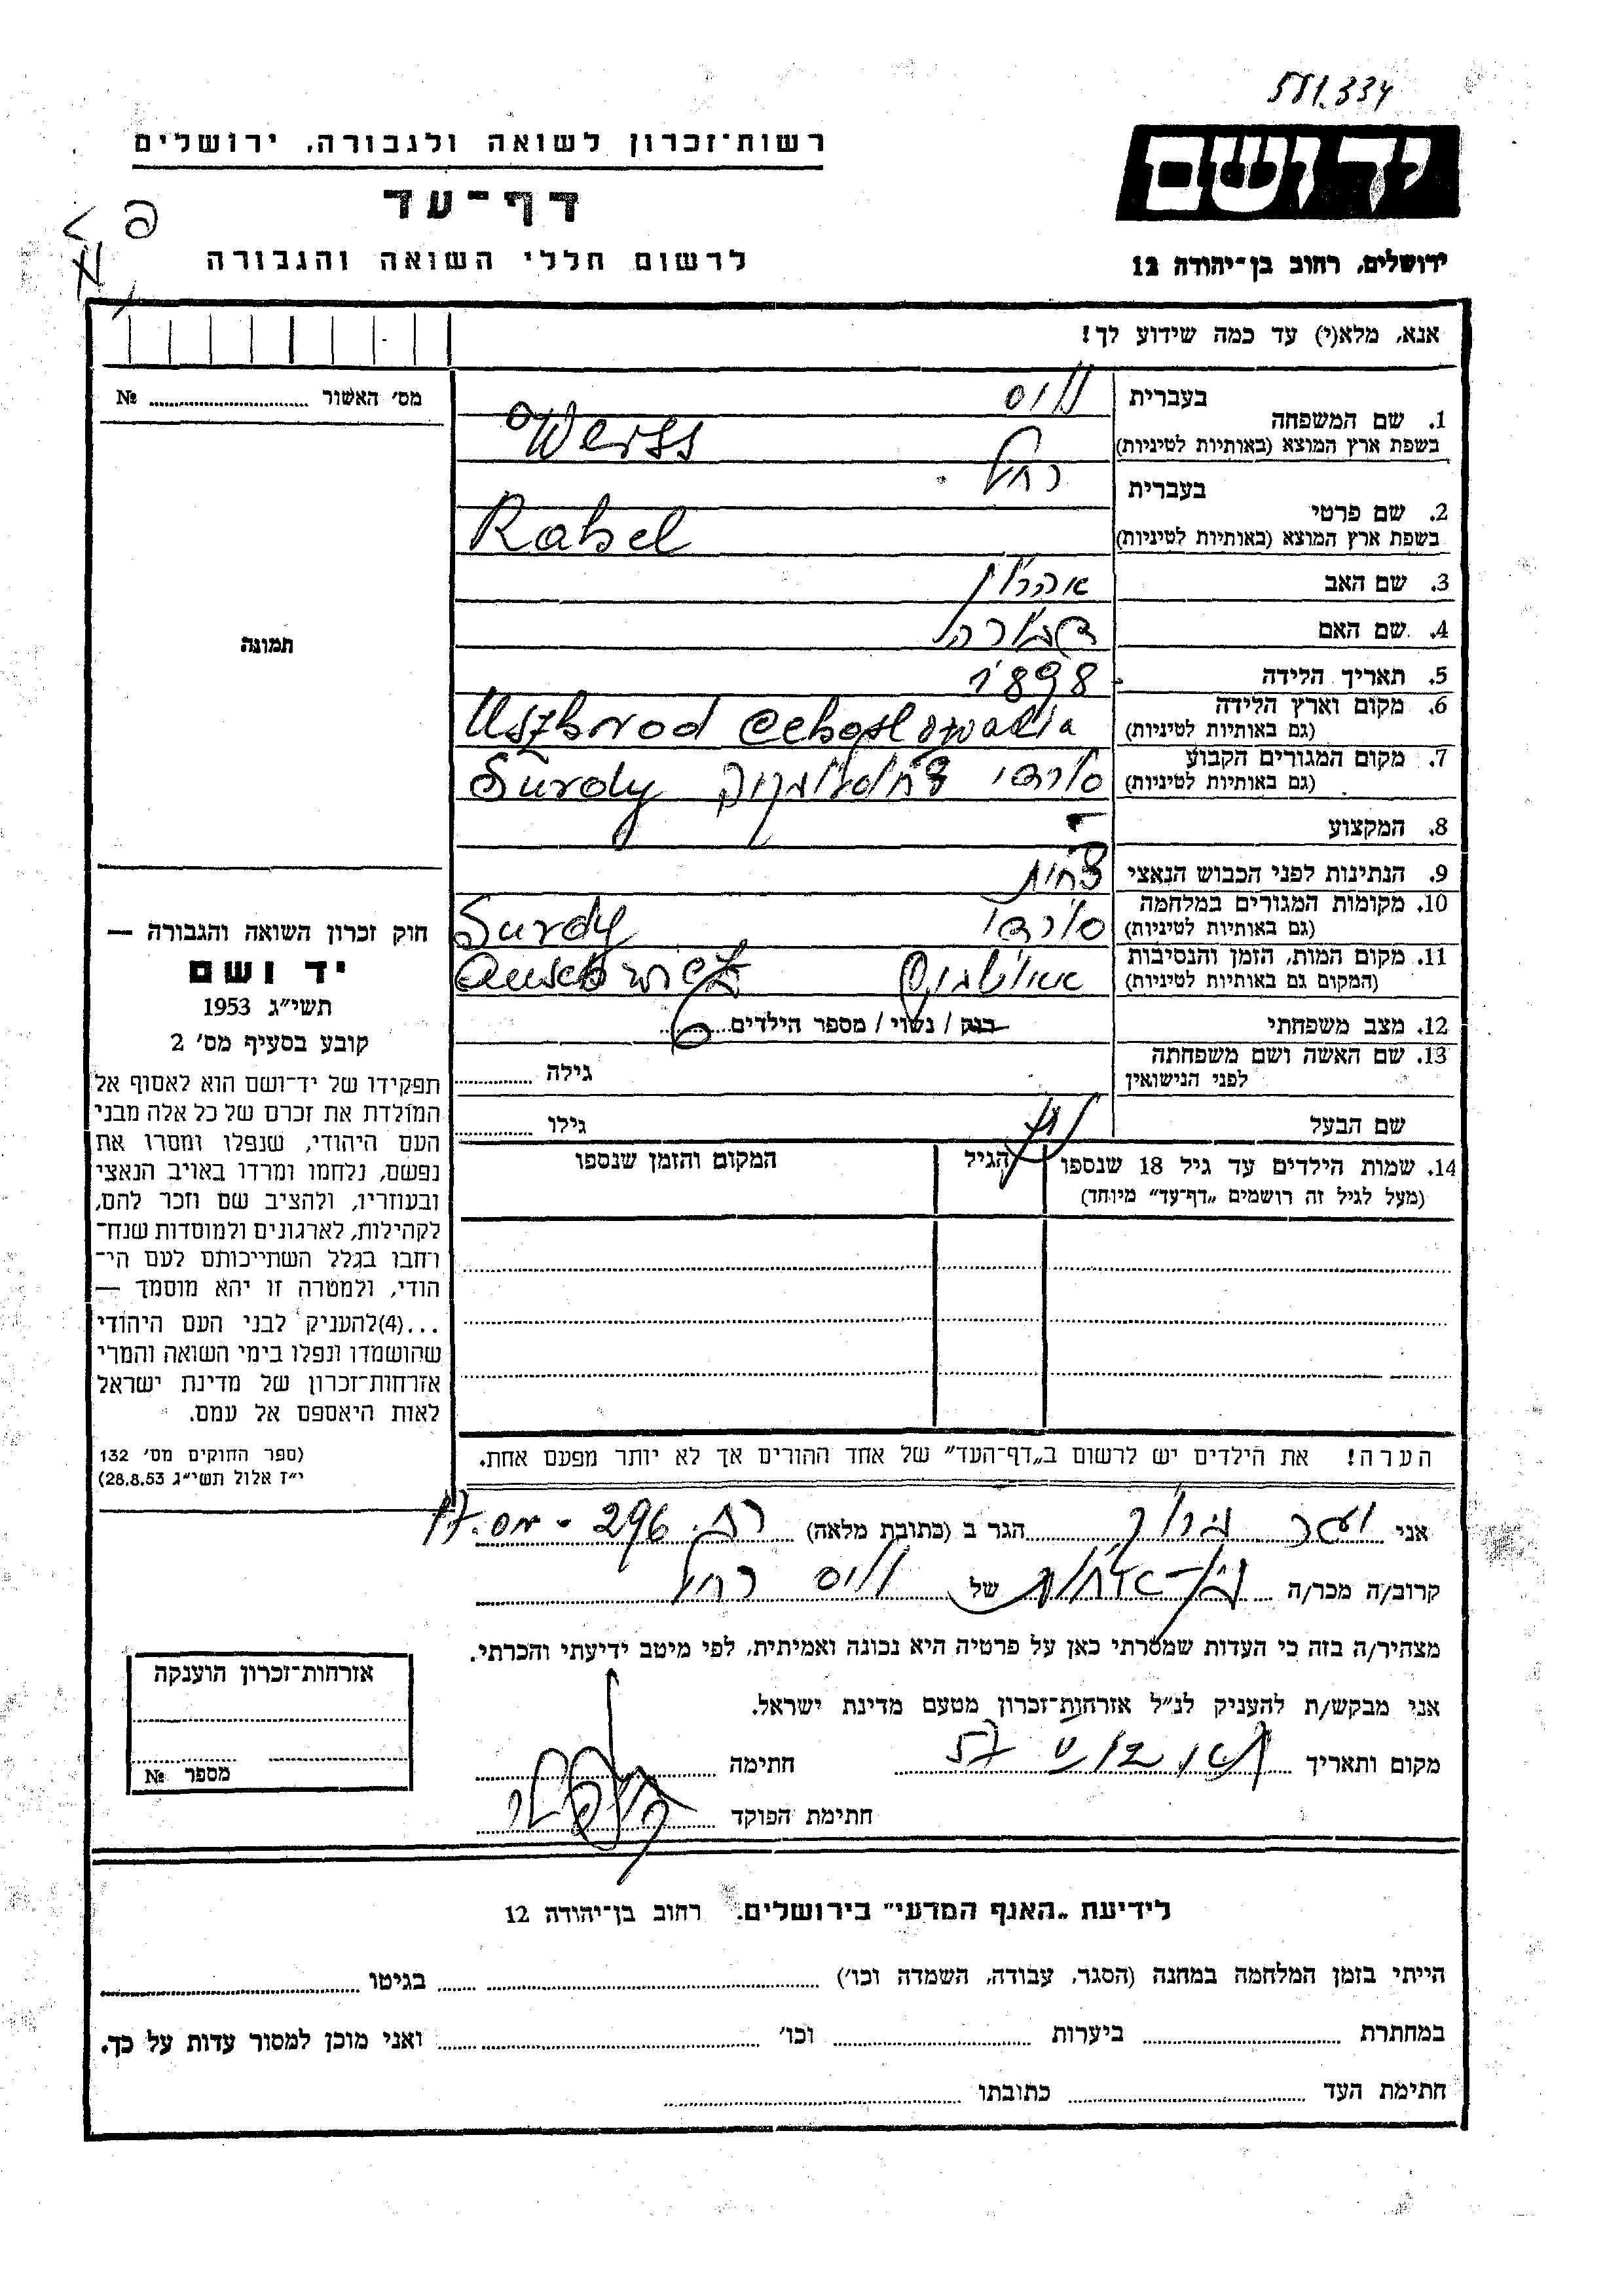 581.334
יד ושם
ירושלים, רחוב בן־יהודה 12
רשות־זכרון לשואה ולגבורה, ירושלים
דף־עד
לרשום חללי השואה והגבורה
אנא, מלא(י) עד כמה שידוע לך!
1. שם המשפחה
בעברית
וייס
בשפת ארץ המוצא (באותיות לטיניות)
Weiss
2. שם פרטי
בעברית
רחל
בשפת ארץ המוצא (באותיות לטיניות)
Rahel
3. שם האב
אהרון
4. שם האם
דבורה
5. תאריך הלידה
1898
6. מקום וארץ הלידה
(גם באותיות לטיניות)
Uszhorod
7. מקום המגורים הקבוע
(גם באותיות לטיניות)
סורדי Surdy
8. המקצוע
9. הנתינות לפני הכבוש הנאצי
צ'כית
10. מקומות המגורים במלחמה
(גם באותיות לטיניות)
סורדי Surdy
11. מקום המות, הזמן והנסיבות
(המקום גם באותיות לטיניות)
12. מצב משפחתי
רוק / נשוי / מספר הילדים 6
13. שם האשה ושם משפחתה
לפני הנישואין
גילה
שם הבעל
גילו
14. שמות הילדים עד גיל 18 שנספו
(מעל לגיל זה רושמים „דף־עד" מיוחד)
הגיל
המקום והזמן שנספו
הערה! את הילדים יש לרשום ב„דף־העד" של אחד ההורים אך לא יותר מפעם אחת.
מס' האשור № 
תמונה
חוק זכרון השואה והגבורה —
יד ושם
תשי"ג 1953
קובע בסעיף מס' 2
תפקידו של יד־ושם הוא לאסוף אל
המולדת את זכרם של כל אלה מבני
העם היהודי, שנפלו ומסרו את
נפשם, נלחמו ומרדו באויב הנאצי
ובעוזריו, ולהציב שם וזכר להם,
לקהילות, לארגונים ולמוסדות שנח־
רחבו בגלל השתייכותם לעם הי־
הודי, ולמטרה זו יהא מוסמך —
...(4)להעניק לבני העם היהודי
שהושמדו ונפלו בימי השואה והמרי
אזרחות־זכרון של מדינת ישראל
לאות היאספם אל עמם.
(ספר החוקים מס' 132
י"ז אלול תשי"ג 28.8.53)
אני הגר ב (כתובת מלאה) רח. 296 - מס. 17
קרוב/ה מכר/ה של וייס רחל
מצהיר/ה בזה כי העדות שמסרתי כאן על פרטיה היא נכונה ואמיתית, לפי מיטב ידיעתי והכרתי.
אני מבקש/ת להעניק לנ"ל אזרחות־זכרון מטעם מדינת ישראל.
מקום ותאריך חתימה
חתימת הפוקד
אזרחות־זכרון הוענקה
מספר №
לידיעת „האנף המדעי" בירושלים. רחוב בן־יהודה 12
הייתי בזמן המלחמה במחנה (הסגר, עבודה, השמדה וכו') בגיטו
במחתרת ביערות וכו' ואני מוכן למסור עדות על כך.
חתימת העד כתובתו